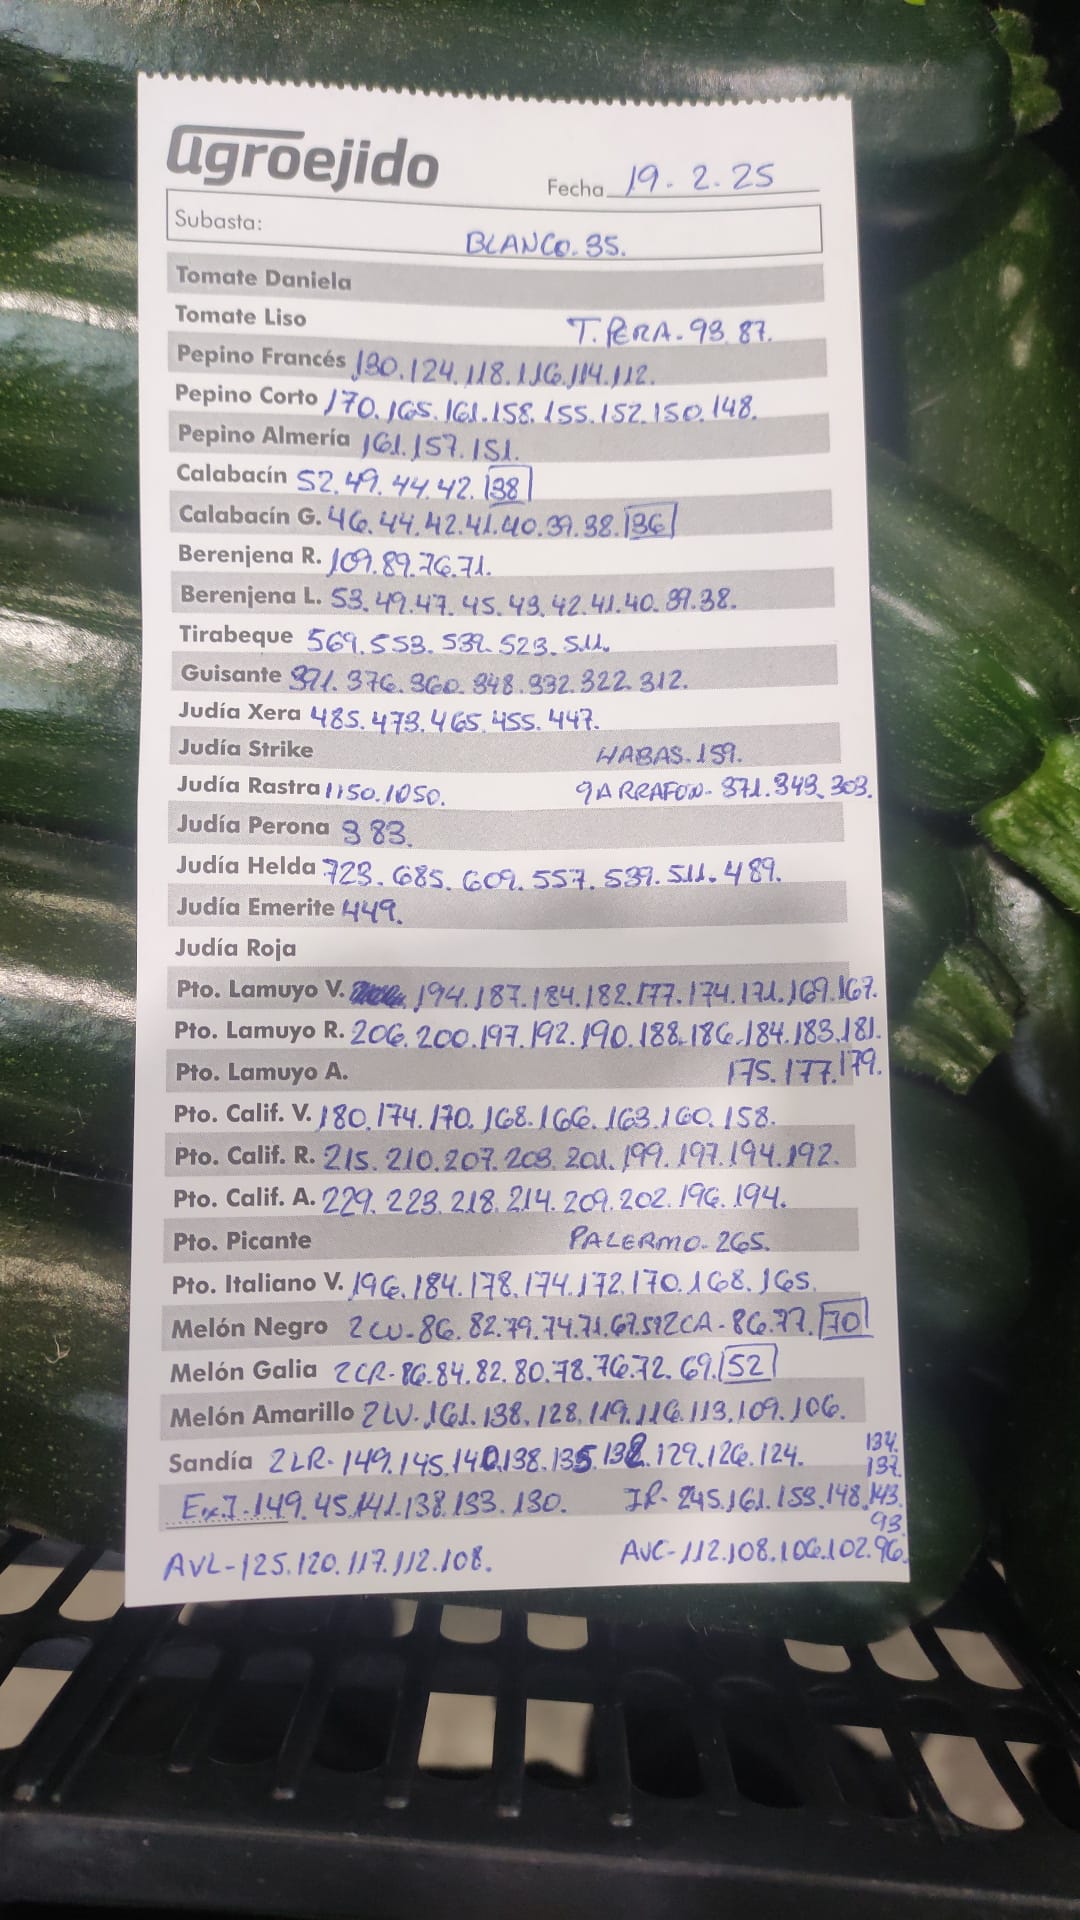 agroejido
Fecha 19.2.25
Subasta: BLANCO.35.
Tomate Daniela
Tomate Liso T.PERA.93.87.
Pepino Francés 130.124.118.116.114.112.
Pepino Corto 170.165.161.158.155.152.150.148.
Pepino Almería 161.157.151.
Calabacín 52.49.44.42.38
Calabacín G. 46.44.42.41.40.39.38.36
Berenjena R. 109.89.76.71.
Berenjena L. 53.49.47.45.43.42.41.40.39.38.
Tirabeque 569.553.539.523.511.
Guisante 391.376.360.348.332.322.312.
Judía Xera 485.473.465.455.447.
Judía Strike HABAS.159.
Judía Rastra 1150.1050. GARRAFON-371.343.303.
Judía Perona 383.
Judía Helda 723.685.609.557.539.511.489.
Judía Emerite 449.
Judía Roja
Pto. Lamuyo V. 194.187.184.182.177.174.171.169.167.
Pto. Lamuyo R. 206.200.197.192.190.188.186.184.183.181.
Pto. Lamuyo A. 175.177.179.
Pto. Calif. V. 180.174.170.168.166.163.160.158.
Pto. Calif. R. 215.210.207.203.201.199.197.194.192.
Pto. Calif. A. 229.223.218.214.209.202.196.194.
Pto. Picante PALERMO-265.
Pto. Italiano V. 196.184.178.174.172.170.168.165.
Melón Negro 2CU-86.82.79.74.71.67.59 2CA-86.77.70
Melón Galia 2CR-86.84.82.80.78.76.72.69.52
Melón Amarillo 2LV-161.138.128.119.116.113.109.106.
Sandía 2LR-149.145.140.138.135.132.129.126.124.
134.
137.
Ex.I-149.45.141.138.133.130. IR-245.161.153.148.143.
93.
AVL-125.120.117.112.108. AVC-112.108.106.102.96.